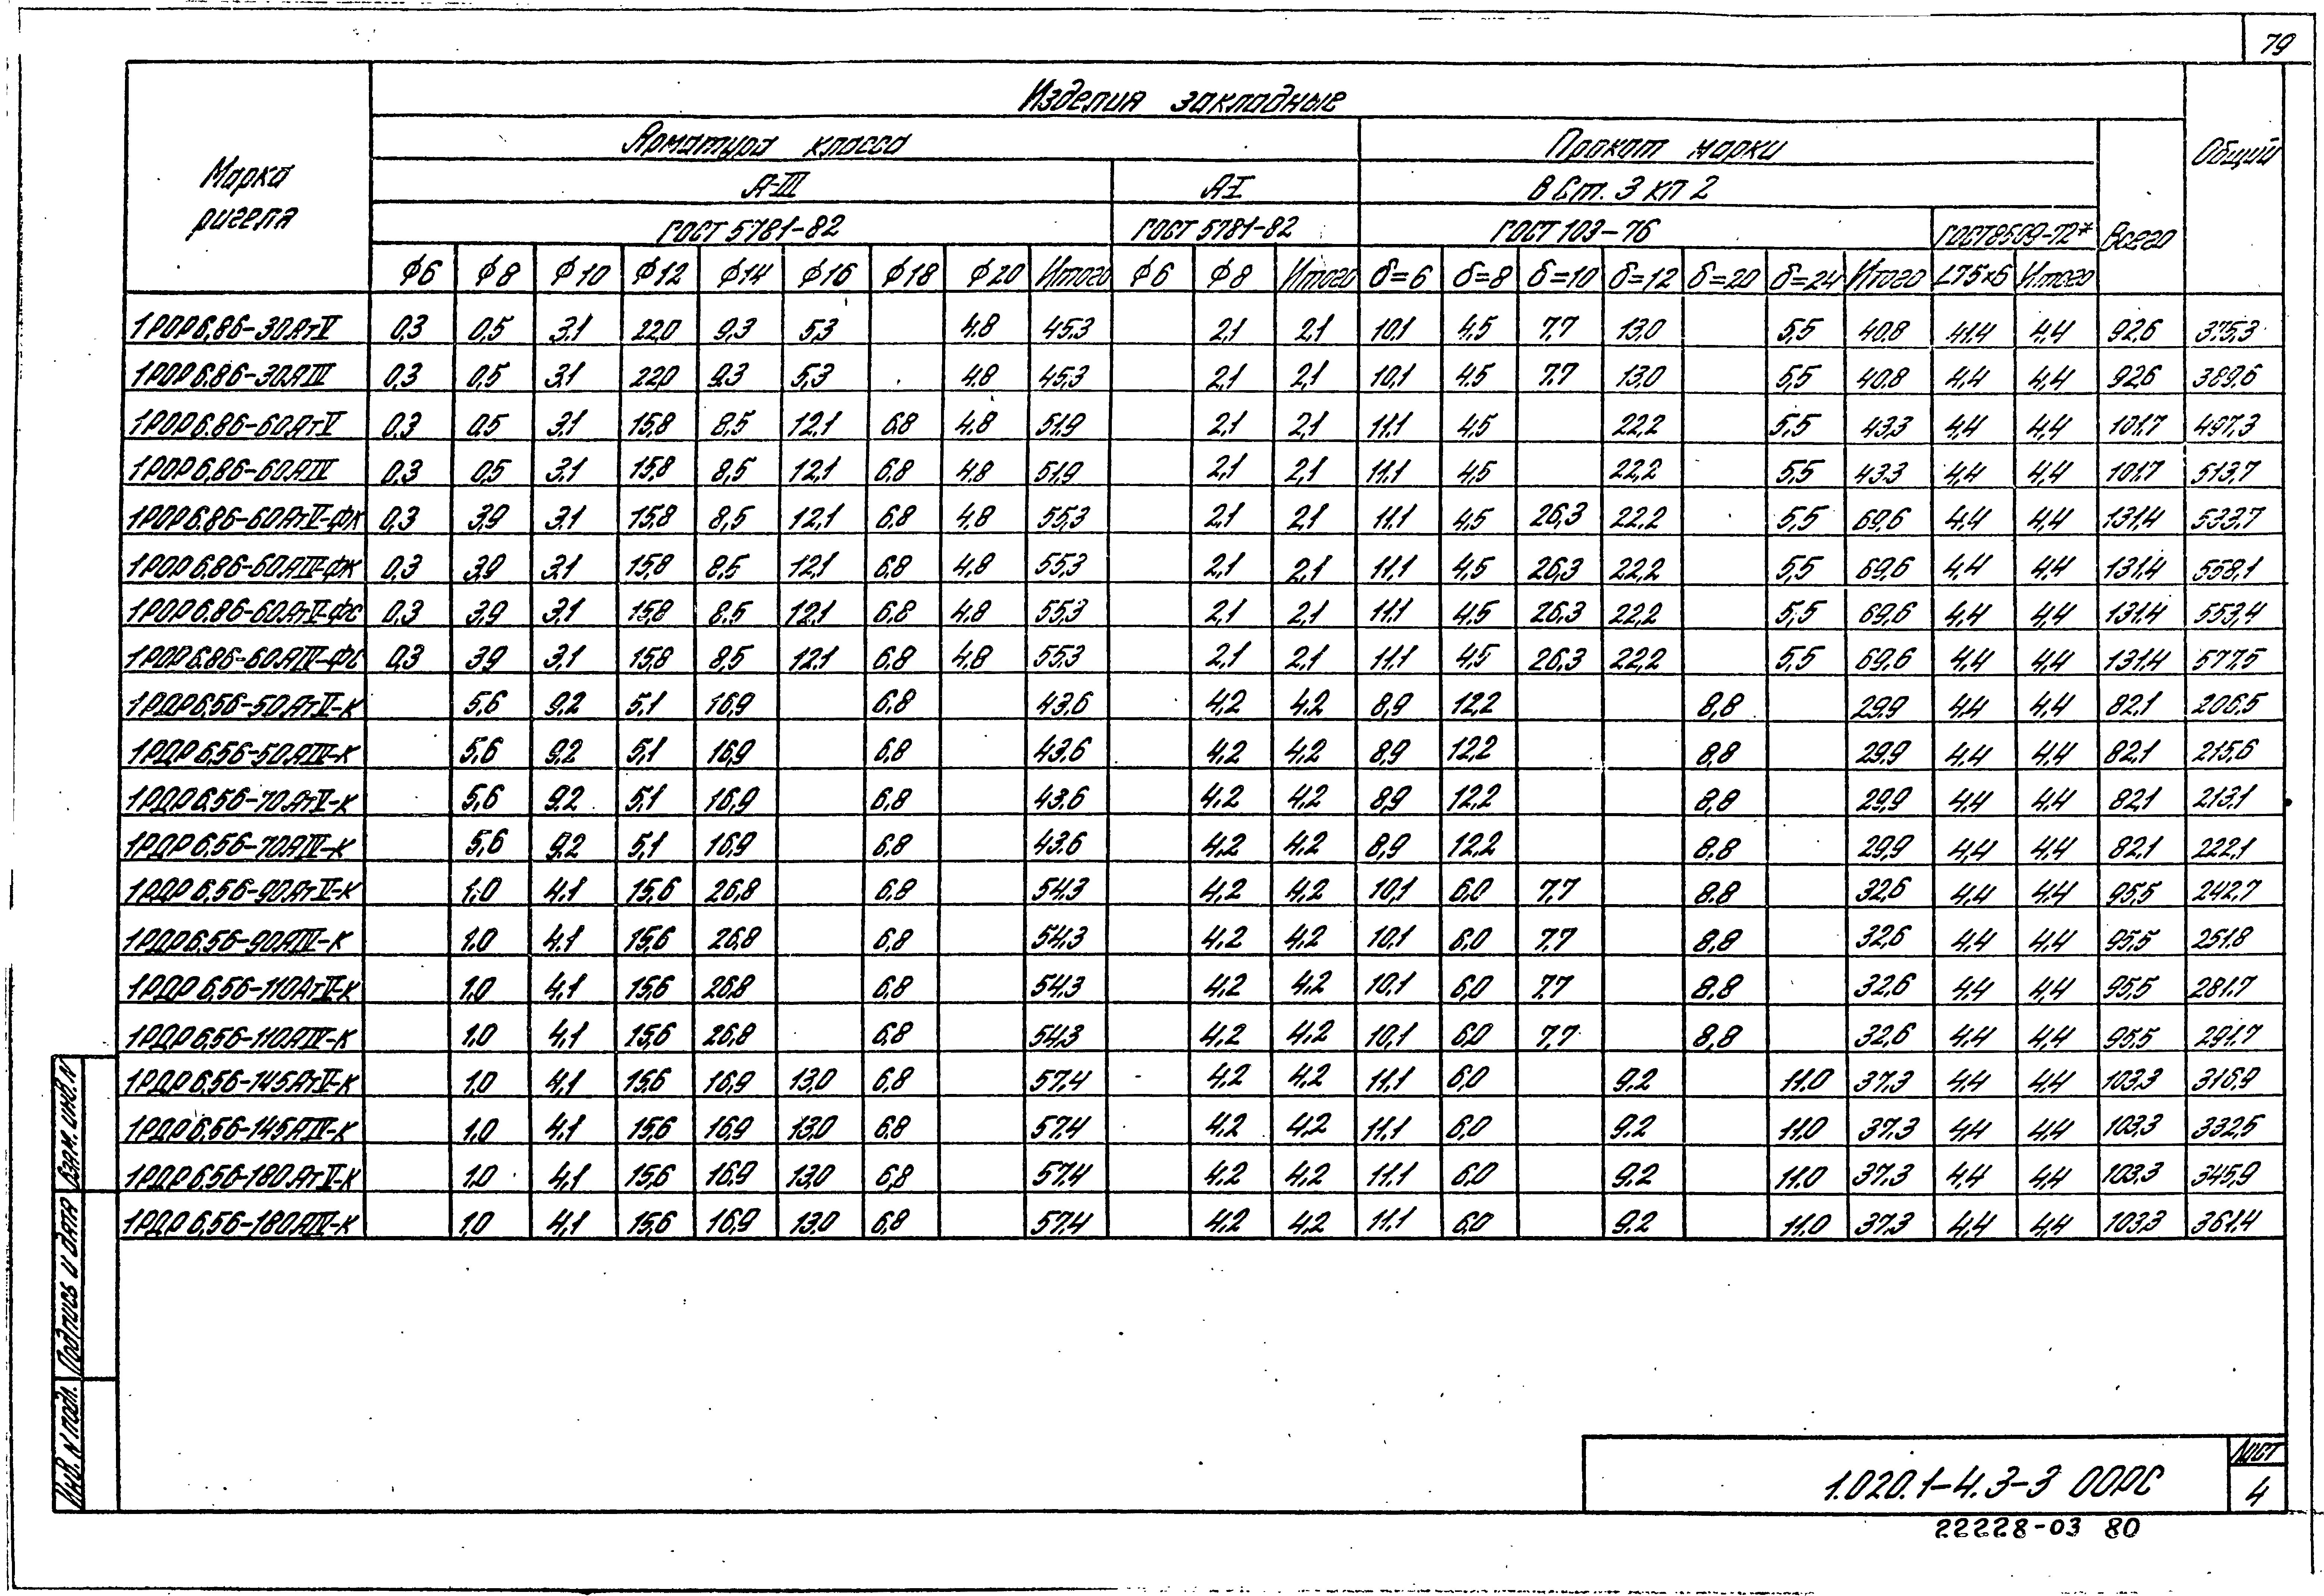 79
Изделия закладные
Марка ригеля
Арматура класса
Прокат марки
Всего
Общий
А-III
А-I
ВСт. 3 кп 2
ГОСТ 5781-82
ГОСТ 5781-82
ГОСТ 103-76
ГОСТ 8509-72*
ϕ6 ϕ8 ϕ10 ϕ12 ϕ14 ϕ16 ϕ18 ϕ20 Итого ϕ6 ϕ8 Итого δ=6 δ=8 δ=10 δ=12 δ=20 δ=24 Итого L75×6 Итого
1РОР6.86-30АтV 0,3 0,5 3,1 22,0 9,3 5,3 4,8 45,3 2,1 2,1 10,1 4,5 7,7 13,0 5,5 40,8 4,4 4,4 92,6 375,3
1РОР6.86-30АIV 0,3 0,5 3,1 22,0 9,3 5,3 4,8 45,3 2,1 2,1 10,1 4,5 7,7 13,0 5,5 40,8 4,4 4,4 92,6 389,6
1РОР6.86-60АтV 0,3 0,5 3,1 15,8 8,5 12,1 6,8 4,8 51,9 2,1 2,1 11,1 4,5 22,2 5,5 43,3 4,4 4,4 101,7 497,3
1РОР6.86-60АIV 0,3 0,5 3,1 15,8 8,5 12,1 6,8 4,8 51,9 2,1 2,1 11,1 4,5 22,2 5,5 43,3 4,4 4,4 101,7 513,7
1РОР6.86-60АтV-фк 0,3 3,9 3,1 15,8 8,5 12,1 6,8 4,8 55,3 2,1 2,1 11,1 4,5 26,3 22,2 5,5 69,6 4,4 4,4 131,4 533,7
1РОР6.86-60АIV-фк 0,3 3,9 3,1 15,8 8,5 12,1 6,8 4,8 55,3 2,1 2,1 11,1 4,5 26,3 22,2 5,5 69,6 4,4 4,4 131,4 558,1
1РОР6.86-60АтV-фс 0,3 3,9 3,1 15,8 8,5 12,1 6,8 4,8 55,3 2,1 2,1 11,1 4,5 26,3 22,2 5,5 69,6 4,4 4,4 131,4 553,4
1РОР6.86-60АIV-фс 0,3 3,9 3,1 15,8 8,5 12,1 6,8 4,8 55,3 2,1 2,1 11,1 4,5 26,3 22,2 5,5 69,6 4,4 4,4 131,4 577,5
1РДР6.56-50АтV-к 5,6 9,2 5,1 16,9 6,8 43,6 4,2 4,2 8,9 12,2 8,8 29,9 4,4 4,4 82,1 206,5
1РДР6.56-50АIV-к 5,6 9,2 5,1 16,9 6,8 43,6 4,2 4,2 8,9 12,2 8,8 29,9 4,4 4,4 82,1 215,6
1РДР6.56-70АтV-к 5,6 9,2 5,1 16,9 6,8 43,6 4,2 4,2 8,9 12,2 8,8 29,9 4,4 4,4 82,1 213,1
1РДР6.56-70АIV-к 5,6 9,2 5,1 16,9 6,8 43,6 4,2 4,2 8,9 12,2 8,8 29,9 4,4 4,4 82,1 222,1
1РДР6.56-90АтV-к 1,0 4,1 15,6 26,8 6,8 54,3 4,2 4,2 10,1 6,0 7,7 8,8 32,6 4,4 4,4 95,5 242,7
1РДР6.56-90АIV-к 1,0 4,1 15,6 26,8 6,8 54,3 4,2 4,2 10,1 6,0 7,7 8,8 32,6 4,4 4,4 95,5 251,8
1РДР6.56-110АтV-к 1,0 4,1 15,6 26,8 6,8 54,3 4,2 4,2 10,1 6,0 7,7 8,8 32,6 4,4 4,4 95,5 281,7
1РДР6.56-110АIV-к 1,0 4,1 15,6 26,8 6,8 54,3 4,2 4,2 10,1 6,0 7,7 8,8 32,6 4,4 4,4 95,5 291,7
1РДР6.56-145АтV-к 1,0 4,1 15,6 16,9 13,0 6,8 57,4 4,2 4,2 11,1 6,0 9,2 11,0 37,3 4,4 4,4 103,3 316,9
1РДР6.56-145АIV-к 1,0 4,1 15,6 16,9 13,0 6,8 57,4 4,2 4,2 11,1 6,0 9,2 11,0 37,3 4,4 4,4 103,3 332,5
1РДР6.56-180АтV-к 1,0 4,1 15,6 16,9 13,0 6,8 57,4 4,2 4,2 11,1 6,0 9,2 11,0 37,3 4,4 4,4 103,3 345,9
1РДР6.56-180АIV-к 1,0 4,1 15,6 16,9 13,0 6,8 57,4 4,2 4,2 11,1 6,0 9,2 11,0 37,3 4,4 4,4 103,3 361,4
Взам. инв. N
Подпись и дата
Инв. N подл.
1.020.1-4.3-3 00РС
Лист
4
22228-03 80